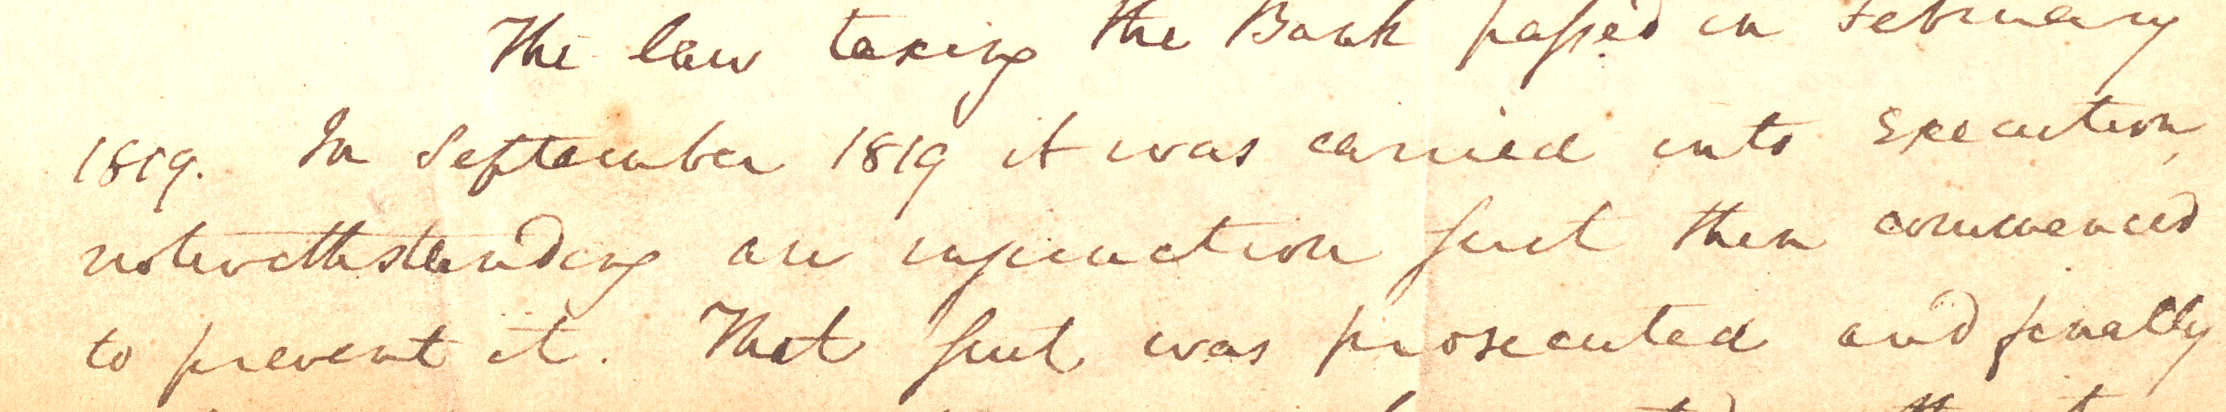 The law taxing the Bank passed in February
1819. In September 1819 it was carried into execution,
notwithstanding an injunction suit then commenced
to prevent it. That suit was prosecuted and finally